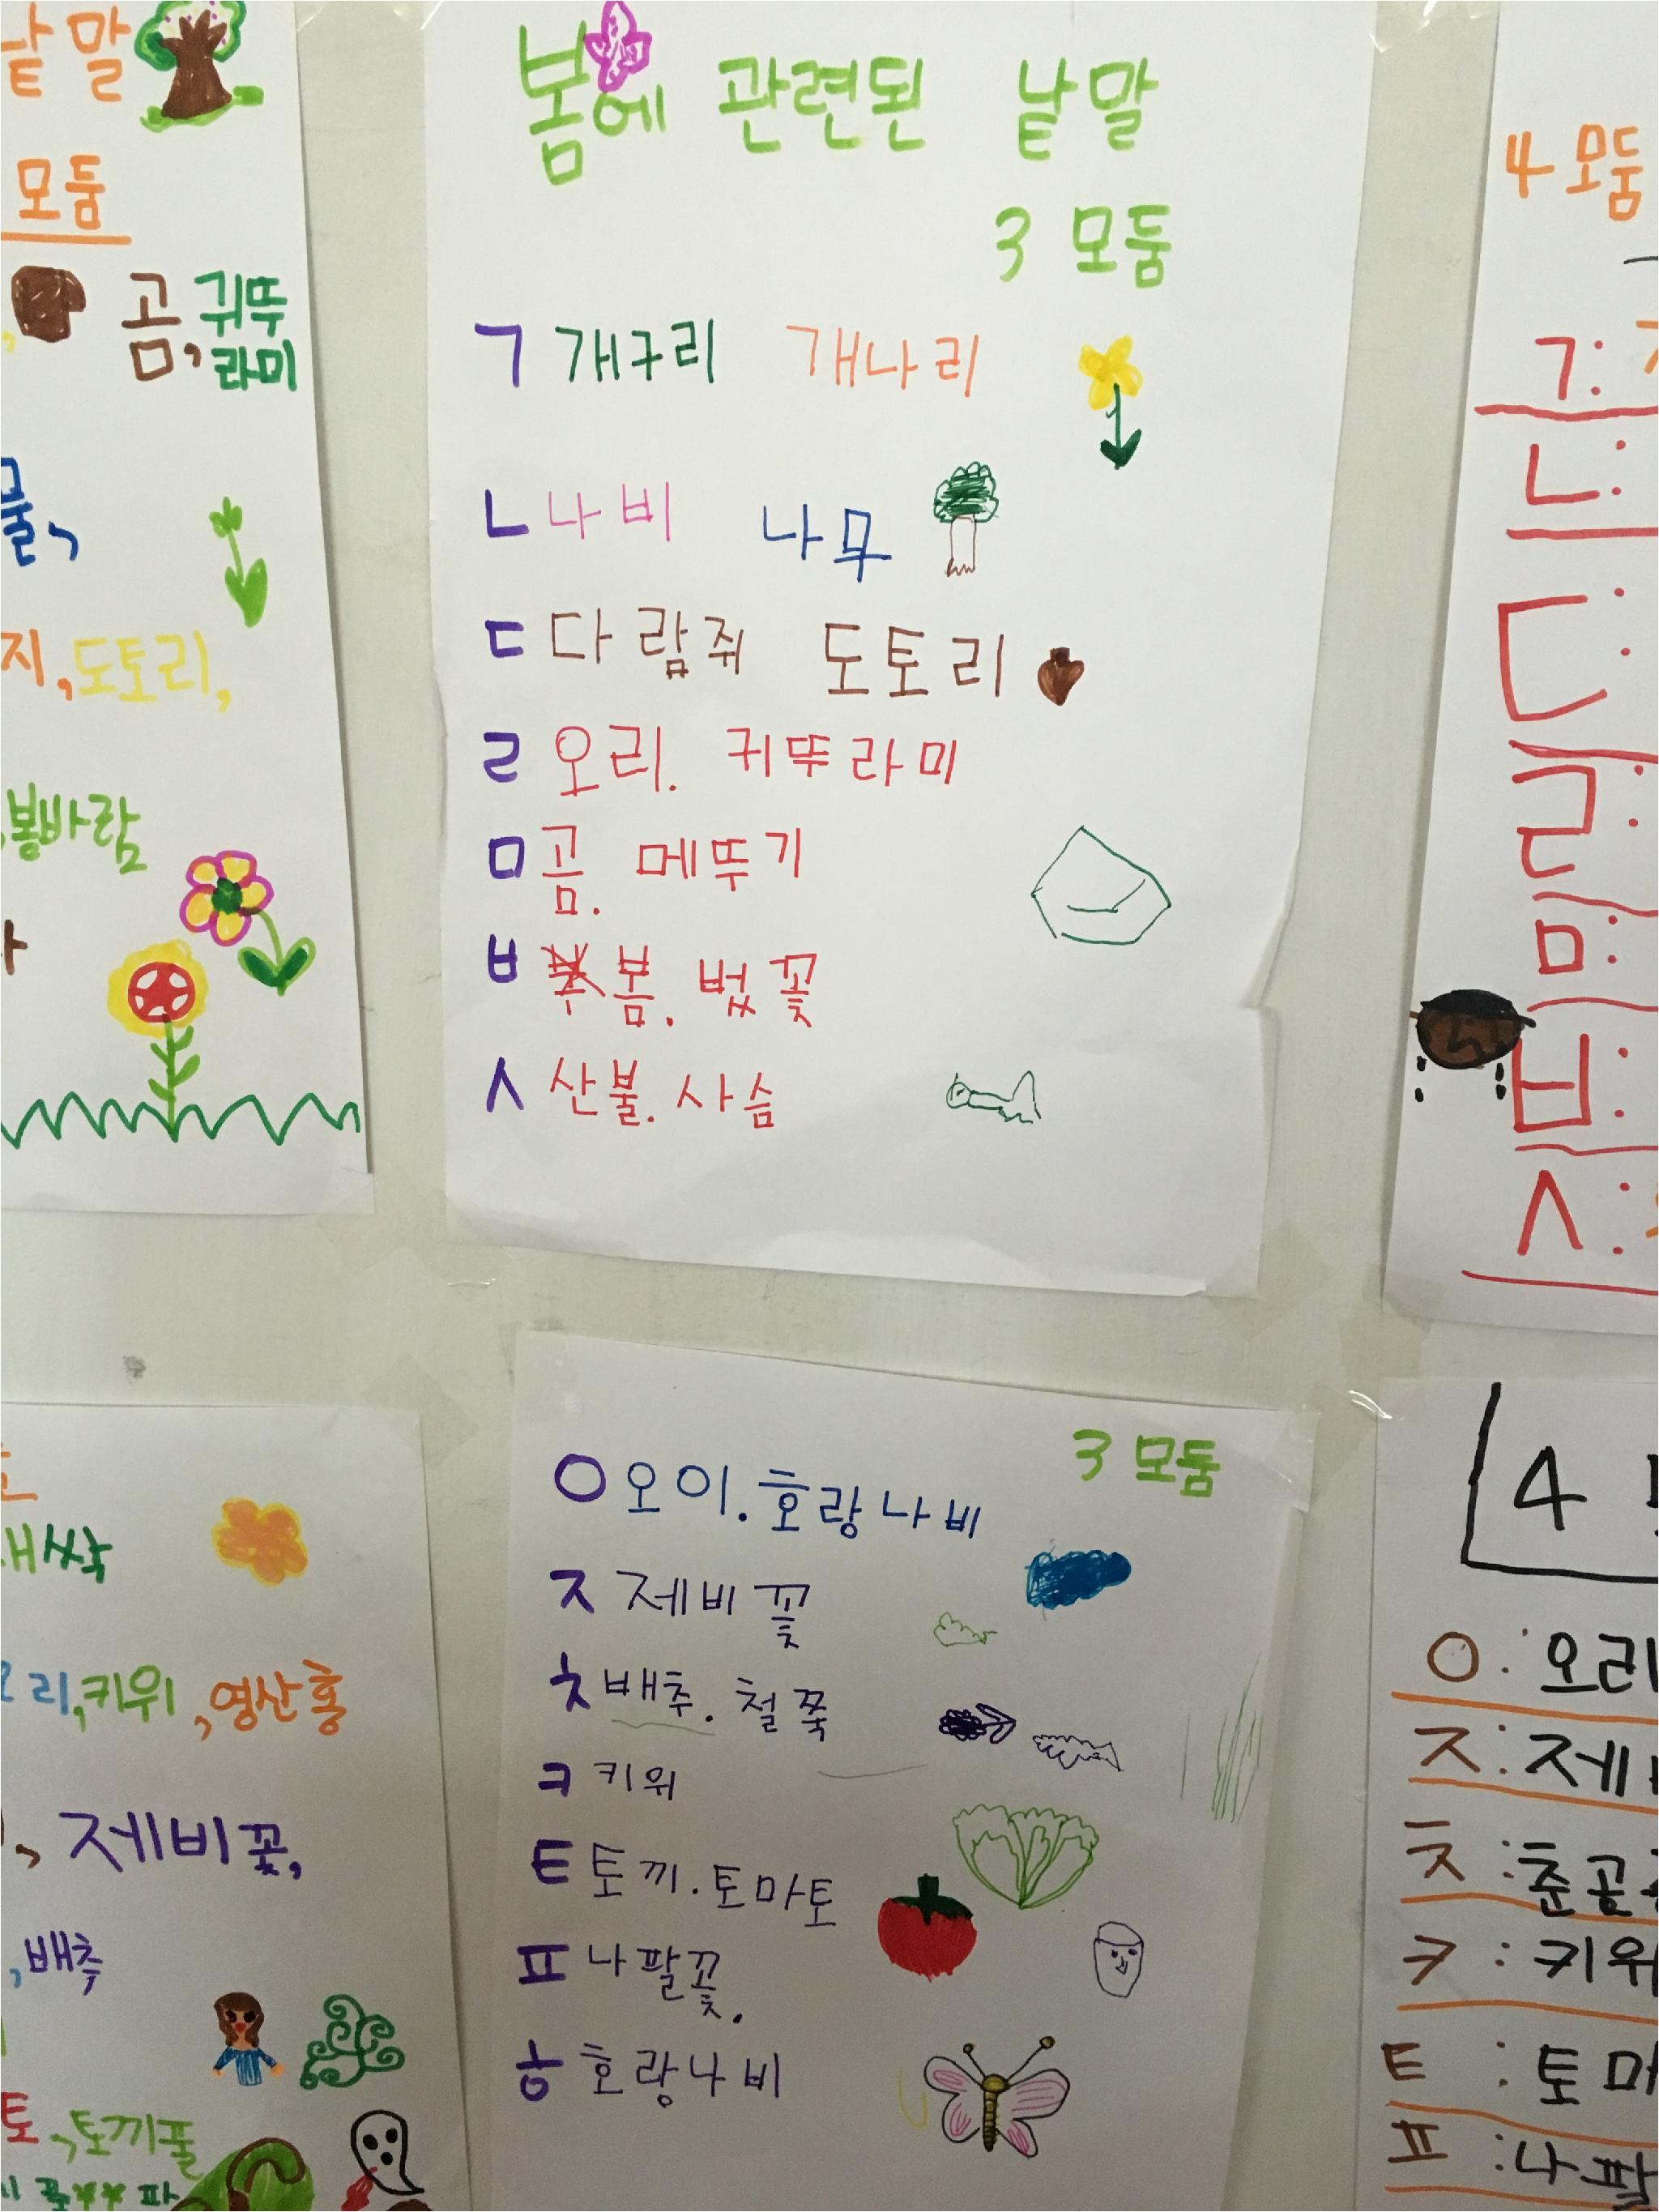 낱말
모둠
곰, 귀뚜
라미
도토리,
봄바람
봄에 관련된 낱말
3 모둠
ㄱ 개구리 개나리
ㄴ 나비 나무
ㄷ 다람쥐 도토리
ㄹ 오리. 귀뚜라미
ㅁ 곰. 메뚜기
ㅂ 봄. 벚꽃
ㅅ 산불. 사슴
4 모둠
ㄱ:
ㄴ:
ㄷ:
ㄹ:
ㅁ:
ㅂ:
ㅅ:
리, 키위, 영산홍
제비꽃,
, 배추
토, 토끼풀
3 모둠
ㅇ 오이. 호랑나비
ㅈ 제비꽃
ㅊ 배추. 철쭉
ㅋ 키위
ㅌ 토끼. 토마토
ㅍ 나팔꽃.
ㅎ 호랑나비
4
ㅇ: 오리
ㅈ: 제비
ㅊ: 춘곤
ㅋ: 키위
ㅌ: 토마
ㅍ: 나팔